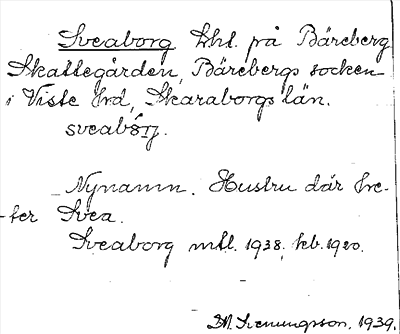 Sveaborg lht. på Bäreberg
Skattegården, Bärebergs socken
i Viste hrd, Skaraborgs län.
Nynamn. Hustru där he-
ter Svea.
Sveaborg mtl. 1938, kb. 1920.
M. Svenungsson, 1939.